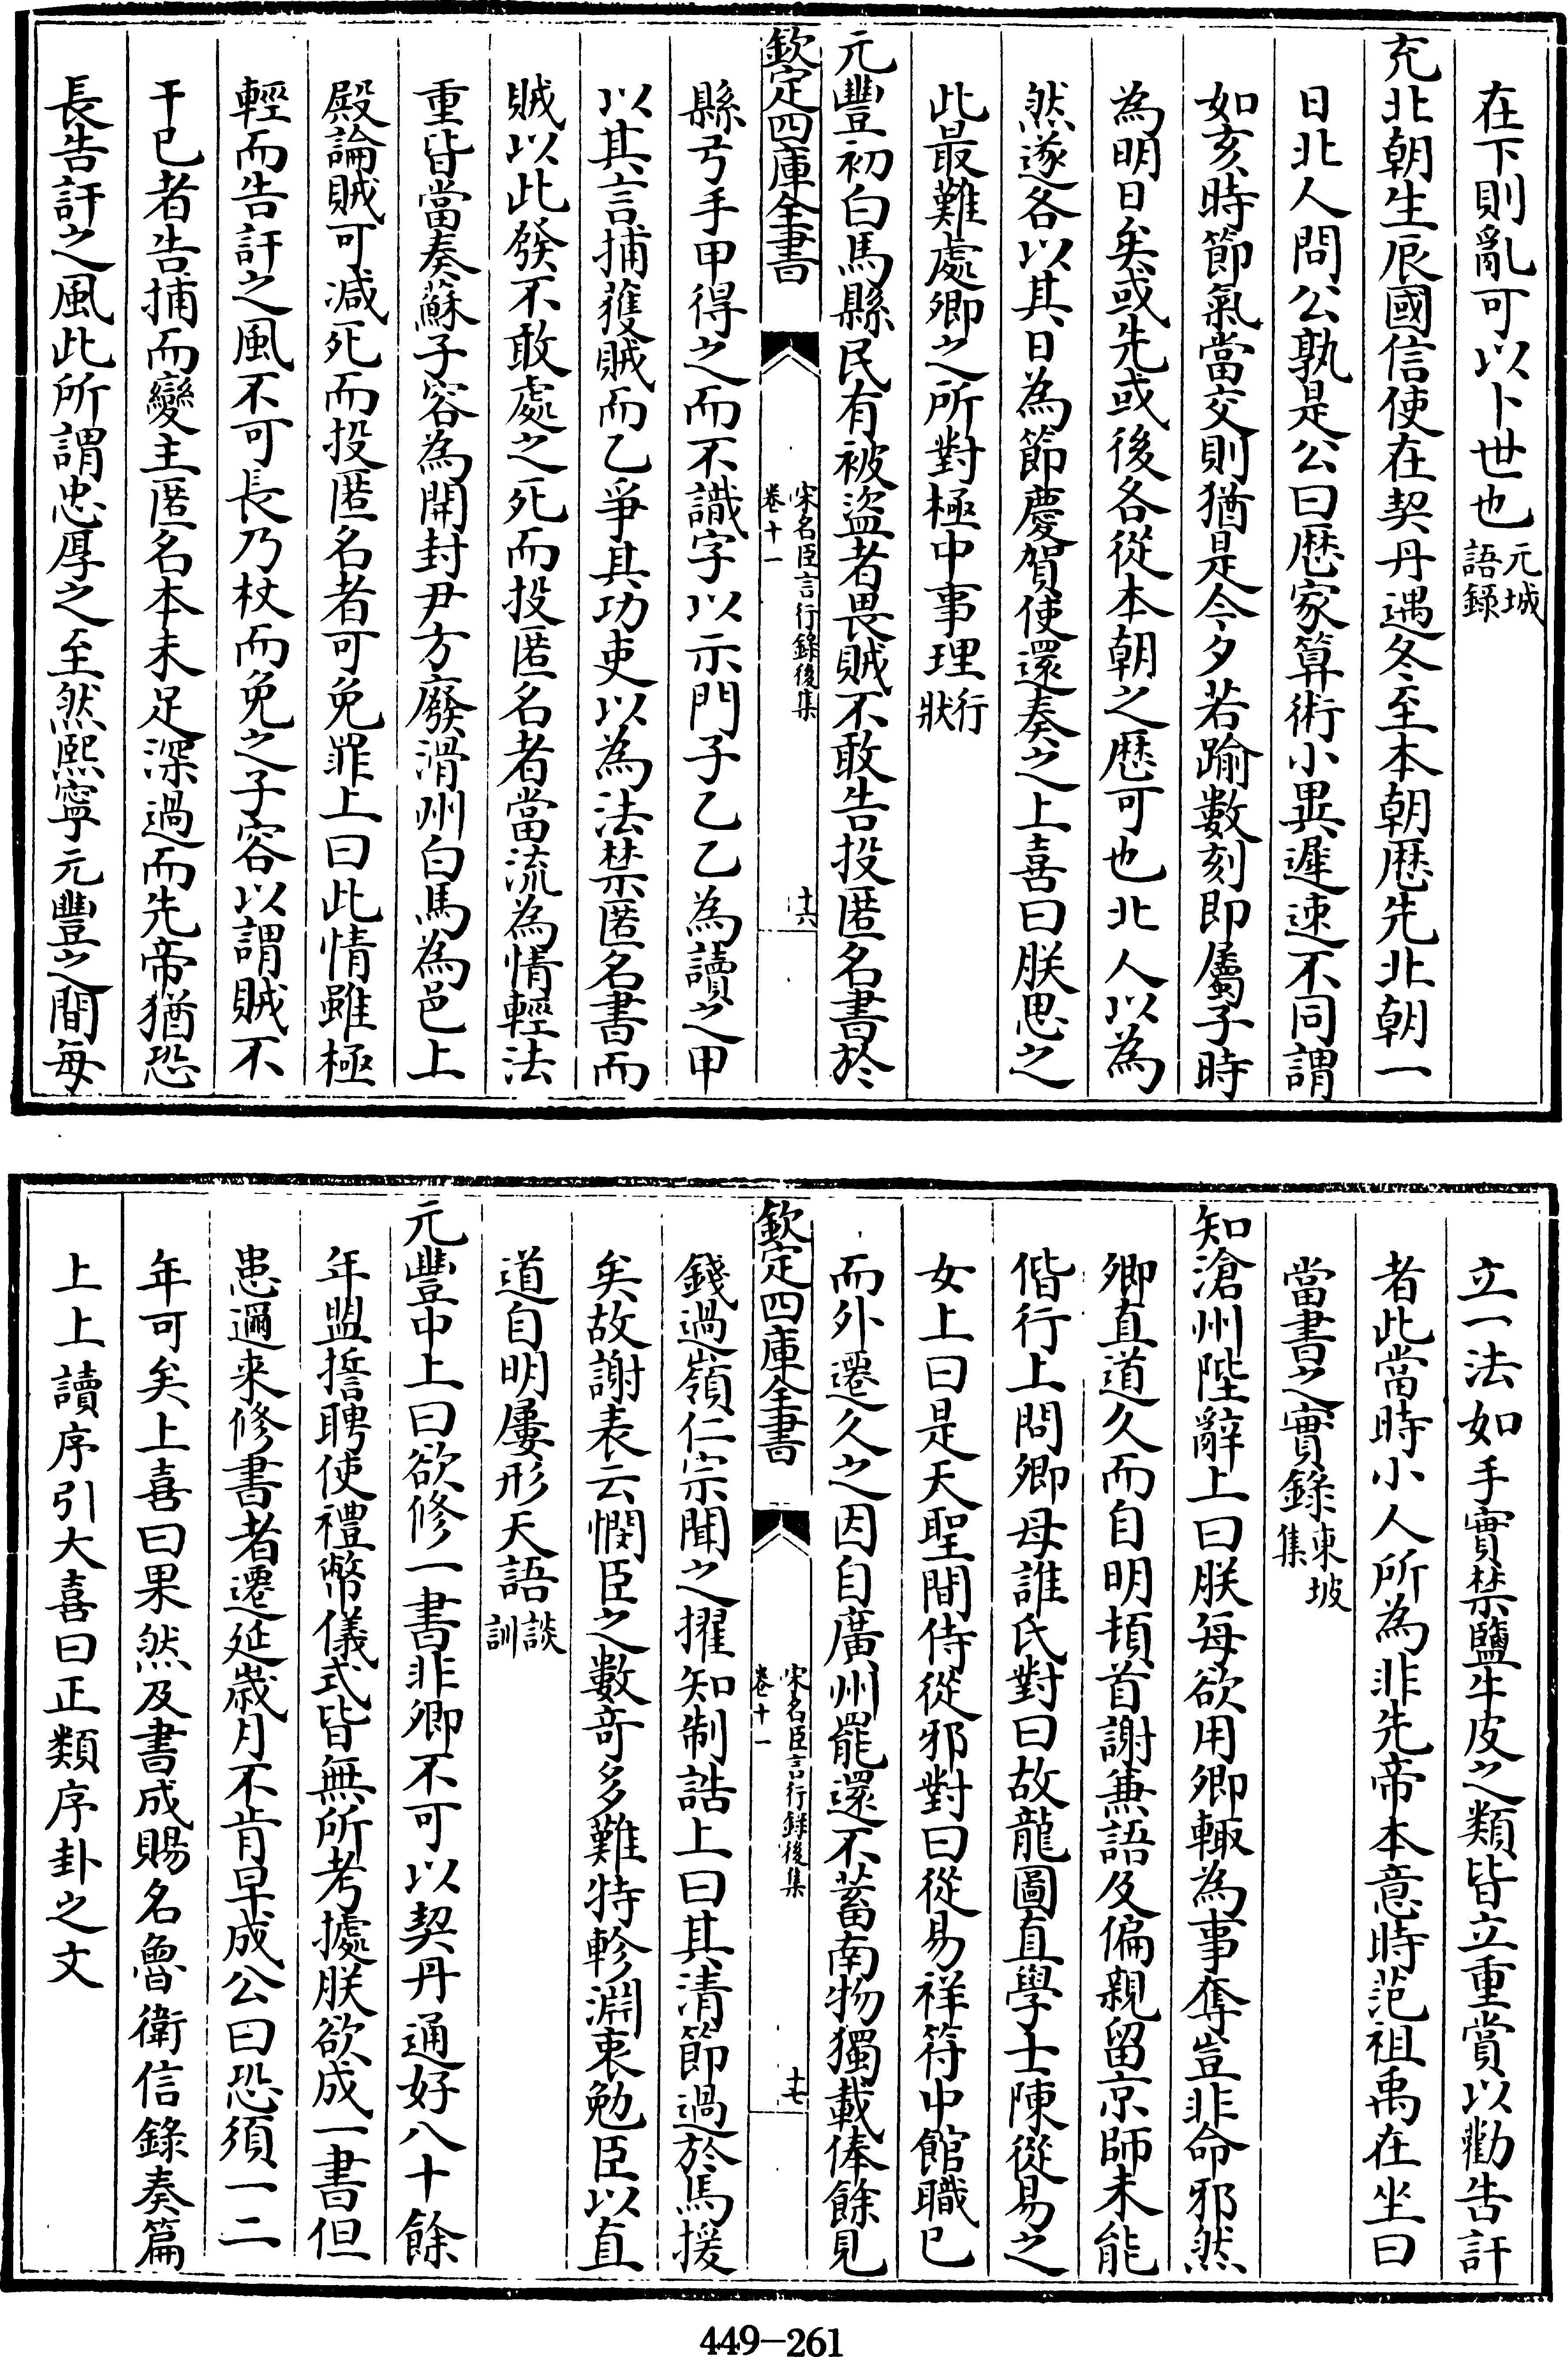 在下則亂可以卜世也元城語錄
充北朝生辰國信使在契丹遇冬至本朝厯先北朝一
日北人問公孰是公曰厯家算術小異遲速不同謂
如亥時節氣當交則猶是今夕若踰數刻即屬子時
為明日矣或先或後各從本朝之厯可也北人以為
然遂各以其日為節慶賀使還奏之上喜曰朕思之
此最難處卿之所對極中事理行狀
元豐初白馬縣民有被盜者畏賊不敢告投匿名書於
欽定四庫全書
宋名臣言行錄後集
卷十一
十六
縣弓手甲得之而不識字以示門子乙乙為讀之甲
以其言捕獲賊而乙爭其功吏以為法禁匿名書而
賊以此發不敢處之死而投匿名者當流為情輕法
重皆當奏蘇子容為開封尹方廢滑州白馬為邑上
殿論賊可減死而投匿名者可免罪上曰此情雖極
輕而告訐之風不可長乃杖而免之子容以謂賊不
干已者告捕而變主匿名本未足深過而先帝猶恐
長告訐之風此所謂忠厚之至然熙寧元豐之間每
立一法如手實禁鹽牛皮之類皆立重賞以勸告訐
者此當時小人所為非先帝本意時范祖禹在坐曰
當書之實錄東坡集
知滄州陛辭上曰朕每欲用卿輒為事奪豈非命邪然
卿直道久而自明頓首謝兼語及偏親留京師未能
偕行上問卿母誰氏對曰故龍圖直學士陳從易之
女上曰是天聖間侍從邪對曰從易祥符中館職已
而外遷久之因自廣州罷還不蓄南物獨載俸餘見
欽定四庫全書
宋名臣言行錄後集
卷十一
十七
錢過嶺仁宗聞之擢知制誥上曰其清節過於馬援
矣故謝表云憫臣之數奇多難特軫淵衷勉臣以直
道自明屢形天語談訓
元豐中上曰欲修一書非卿不可以契丹通好八十餘
年盟誓聘使禮幣儀式皆無所考據朕欲成一書但
患邇来修書者遷延歲月不肯早成公曰恐須一二
年可矣上喜曰果然及書成賜名魯衛信錄奏篇
上上讀序引大喜曰正類序卦之文
449-261